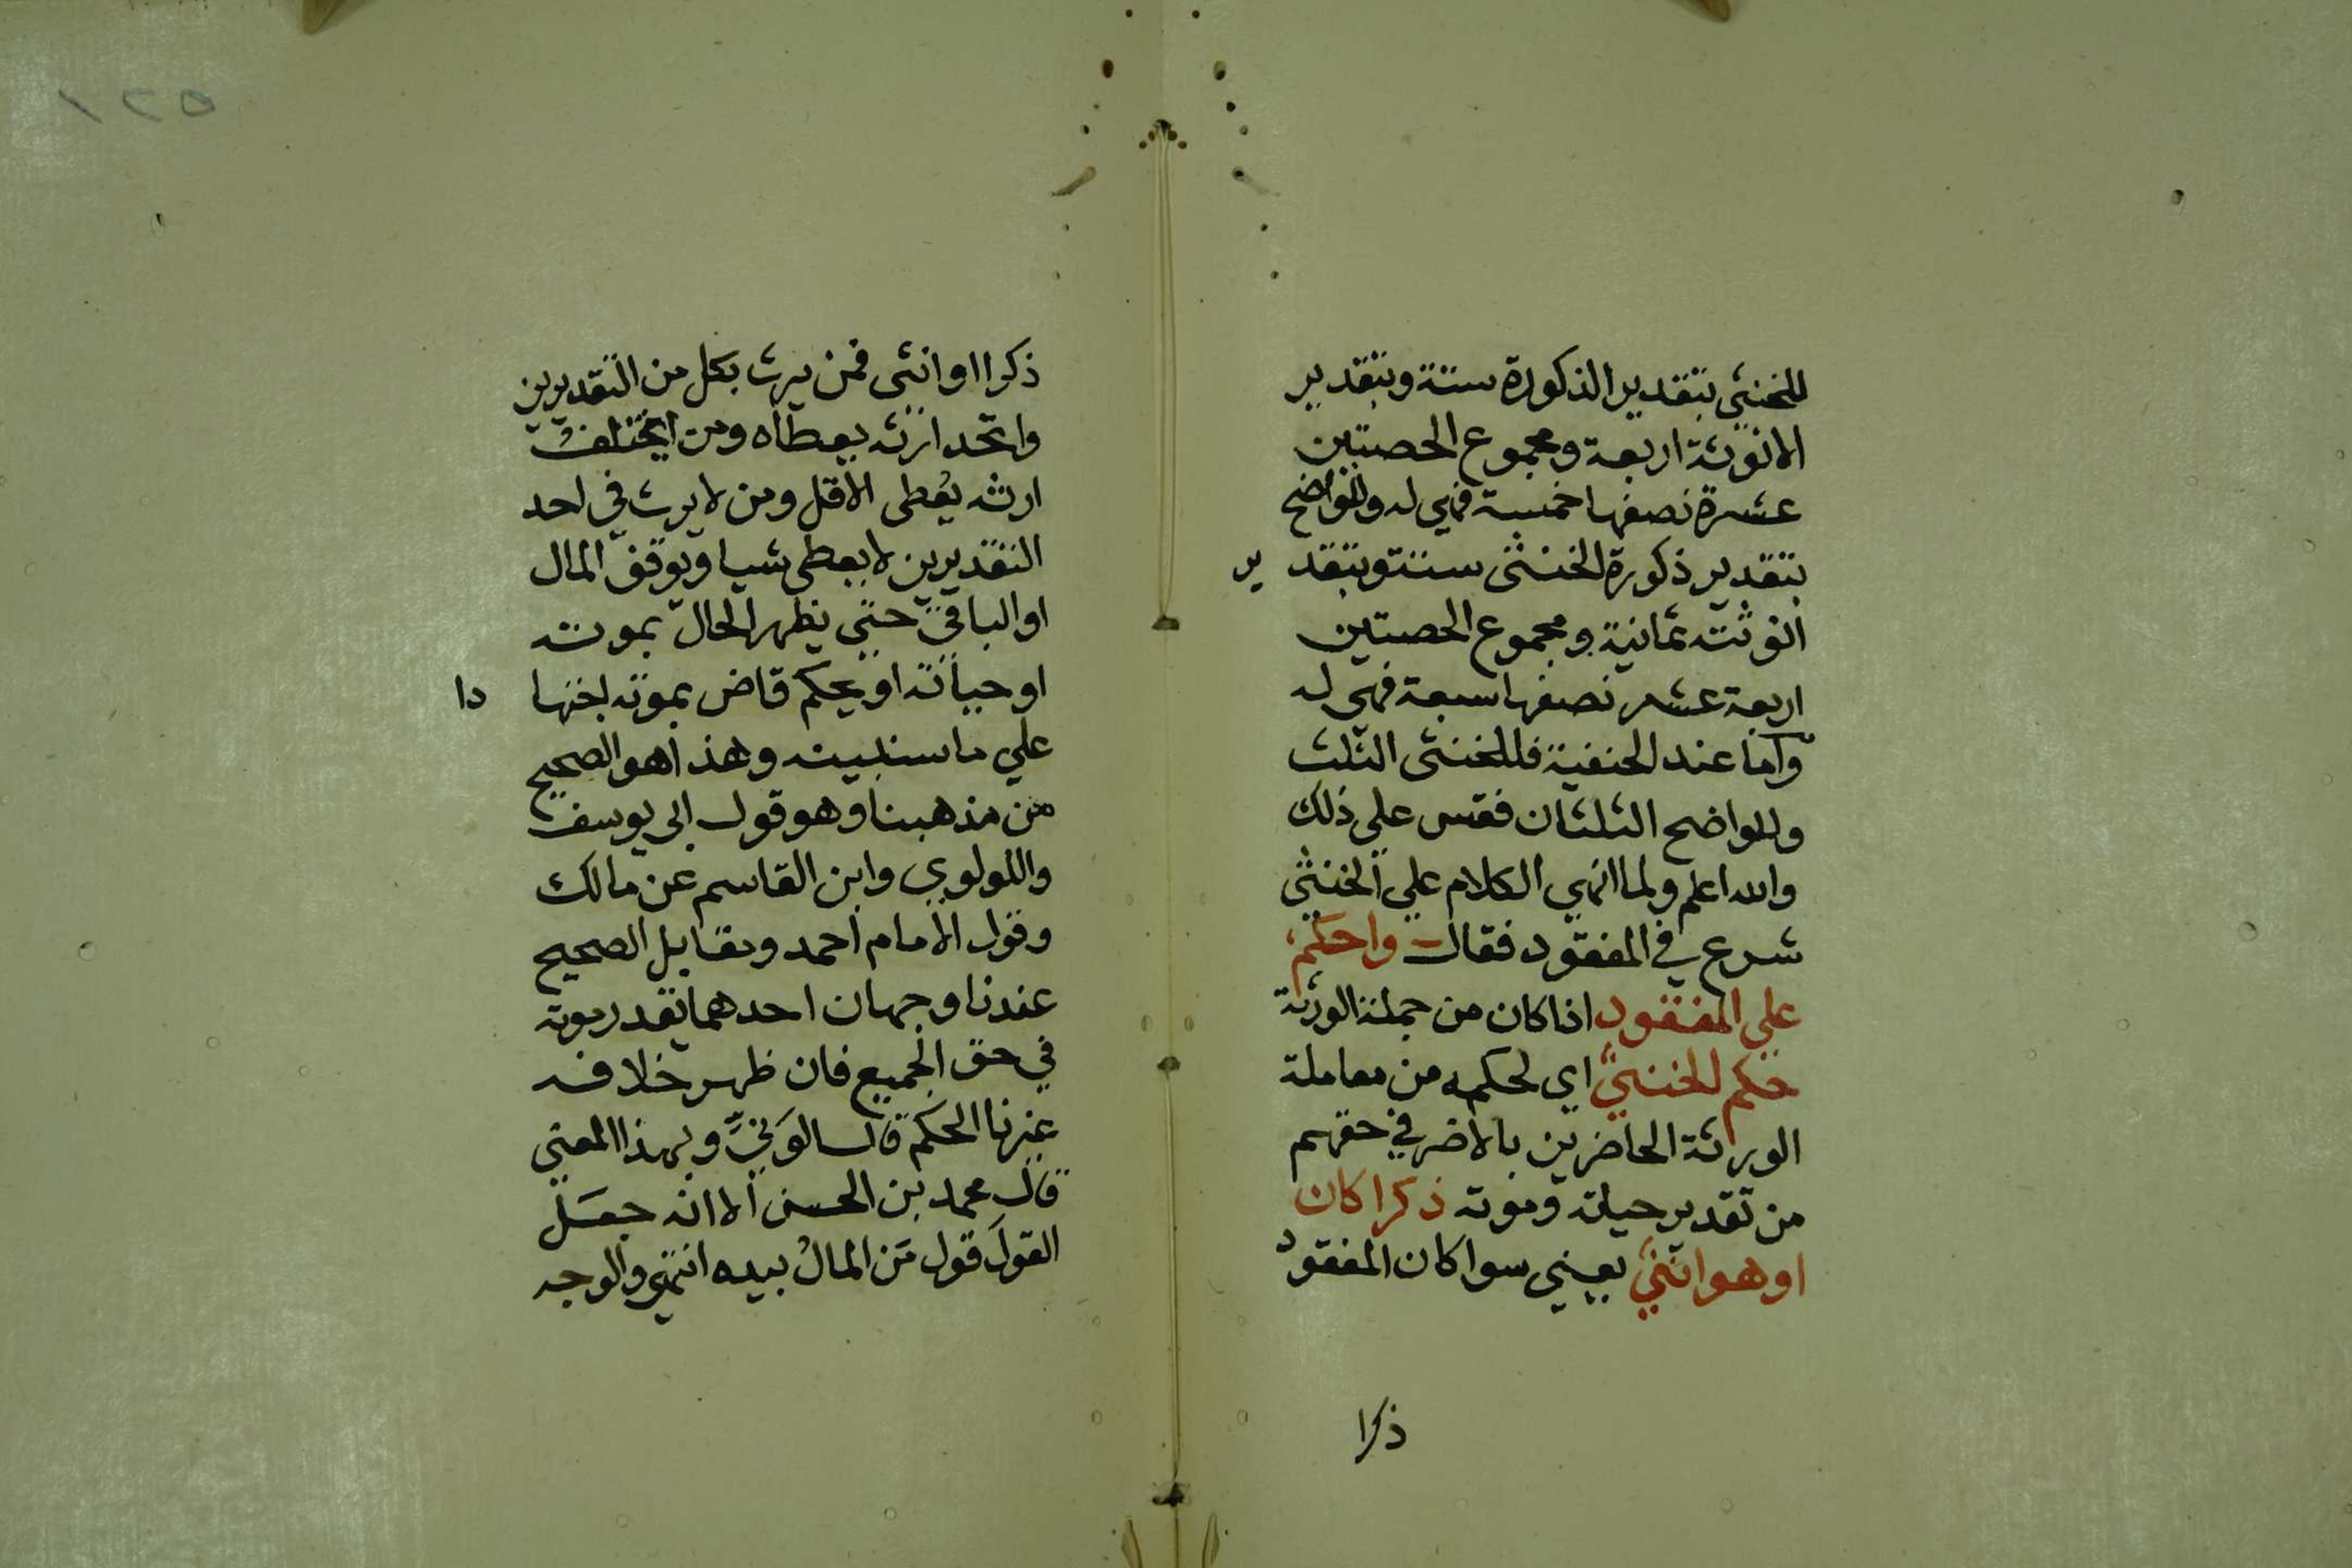 للخنثي بتقدير الذكورة ستة وبتقدير
الانوثة اربعة ومجموع الحصتين
عشرة نصفها خمسة فهي له وللواضح
بتقدير ذكورة الخنثى ستة وبتقدير
انوثته ثمانية ومجموع الحصتين
اربعة عشر نصفها سبعة فهى له
واما عند الحنفية فللخنثى الثلث
وللواضح الثلثان فقس علي ذلك
والله اعلم ولما انهي الكلام علي الخنثي
شرع في المفقود فقال واحكم
علي المفقود اذا كان من جملة الورثة
حكم الخنثي اي لحكمه من معاملة
الورثة الحاضرين بالاضر في حقهم
من تقدير حياته وموته ذكرا كان
او هو انثي يعني سوا كان المفقود
ذكرا
١٢٥
ذكرا او انثى فمن يرث بكل من التقديرين
واتحد ارثه يعطاه ومن يختلف
ارثه يُعطى الاقل ومن لا يرث في احد
التقديرين لا يعطى شيا ويوقف المال
او الباقي حتي يظهر الحال بموته
او حياته او يحكم قاض بموته اجتهادا
علي ما سنبينه وهذا هو الصحيح
من مذهبنا وهو قول ابى يوسف
واللولوي وابن القاسم عن مالك
وقول الامام احمد ومقابل الصحيح
عندنا وجهان احدهما تقدر موته
في حق الجميع فان ظهر خلافه
غيرنا الحكم قال الوَنِّيُّ وبهذا المعني
قال محمد بن الحسن الا انه جعَل
القولَ قول مَن المالُ بيده انتهي والوجه